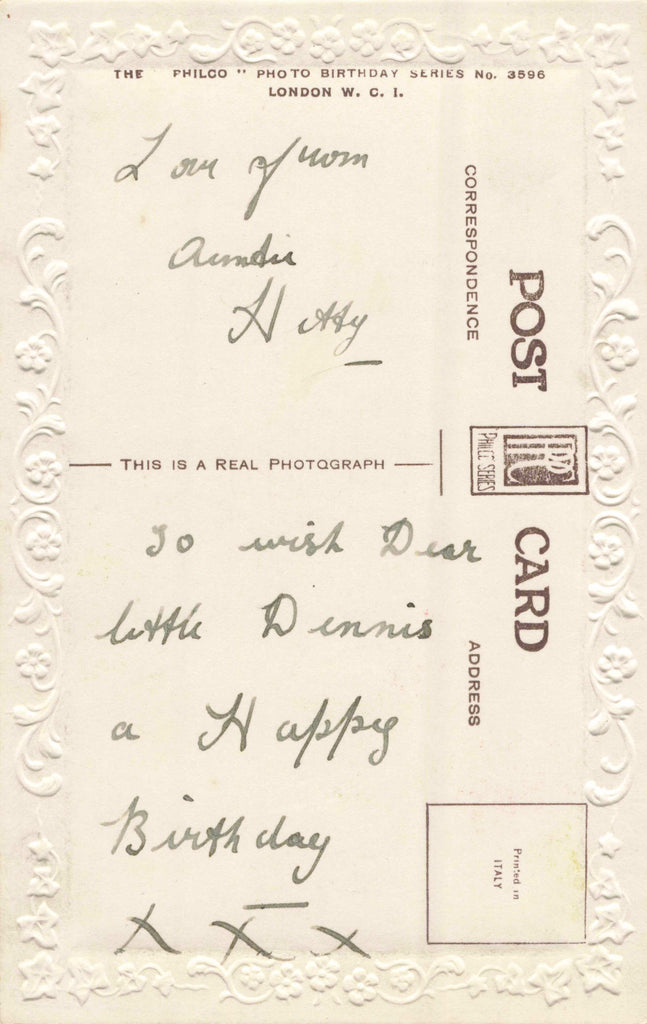 THE " PHILCO " PHOTO BIRTHDAY SERIES No. 3596
LONDON W. C. I.
Love from
Auntie
Hetty
CORRESPONDENCE
POST
THIS IS A REAL PHOTOGRAPH
PHILCO SERIES
CARD
To wish Dear
little Dennis
a Happy
Birthday
X X X
ADDRESS
Printed in
ITALY